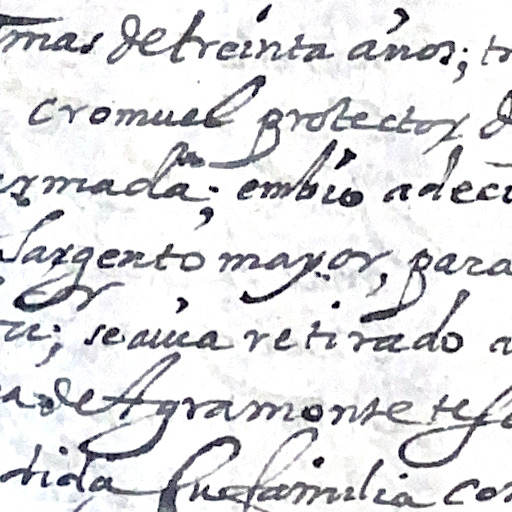 mas de treinta años; tr
cromuel protector d
armada; embio a deci
Sargento mayor, para
se auia retirado a
de Agramonte teso
su familia con